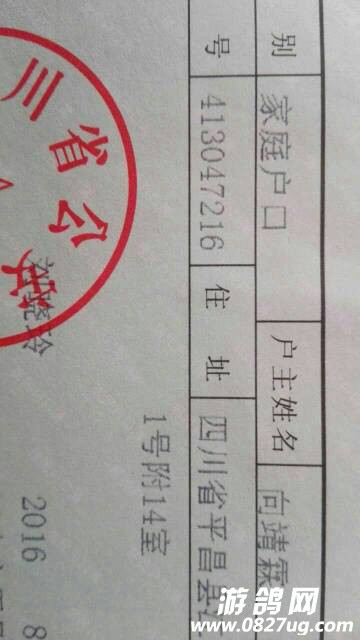 别 家庭户口 户主姓名 向靖霖
号 413047216 住址 四川省平昌县
1号附14室
川省公
晓玲
2016 8
游鸽网
www.0827ug.com